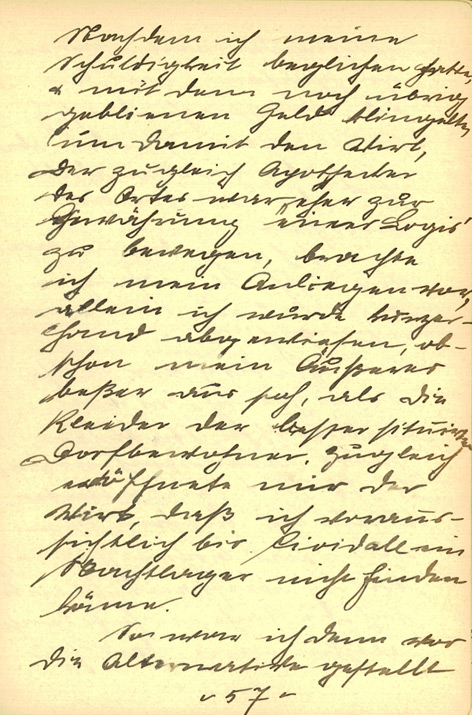 Nachdem ich meine
Schuldigkeit beglichen hatte,
& mit dem noch übrig
gebliebenen Geld klingelte,
um damit den Wirt,
der zugleich Apotheker
des Ortes war, eher zur
Gewährung eines Logis'
zu bewegen, brachte
ich mein Anliegen vor,
allein ich wurde kurzer-
hand abgewiesen, ob-
schon mein Äußeres
beßer aus sah, als die
Kleider der besser situierten
Dorfbewohner. Zugleich
eröffnete mir der
Wirt, daß ich voraus-
sichtlich bis Cividall ein
Nachtlager nicht finden
könne.
So war ich denn vor
die Alternative gestellt
- 57 -